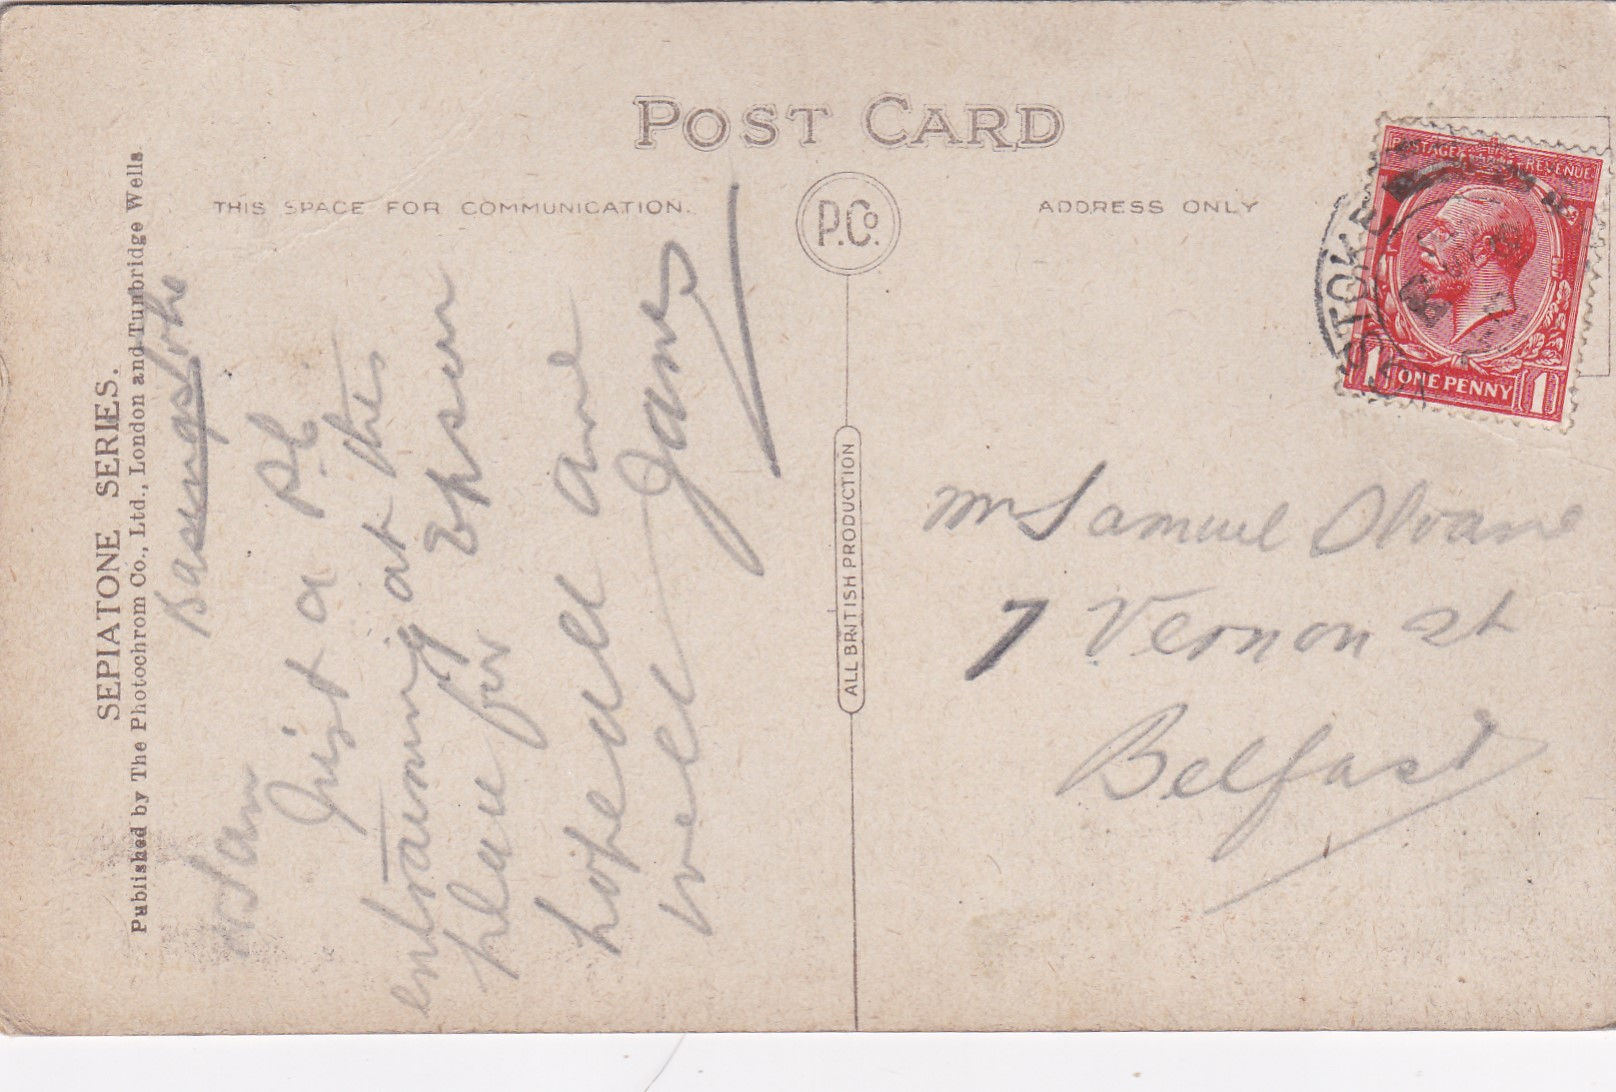 POST CARD
THIS SPACE FOR COMMUNICATION.
P.Co.
ADDRESS ONLY
SEPIATONE SERIES.
Published by The Photochrom Co., Ltd., London and Tunbridge Wells
ALL BRITISH PRODUCTION
POSTAGE REVENUE
1 ONE PENNY 1
Basingstoke
Sam
Just a P.C
entraining at this
place for Epsom
hope all are
well James
Mr Samuel
7 Vernon St
Belfast